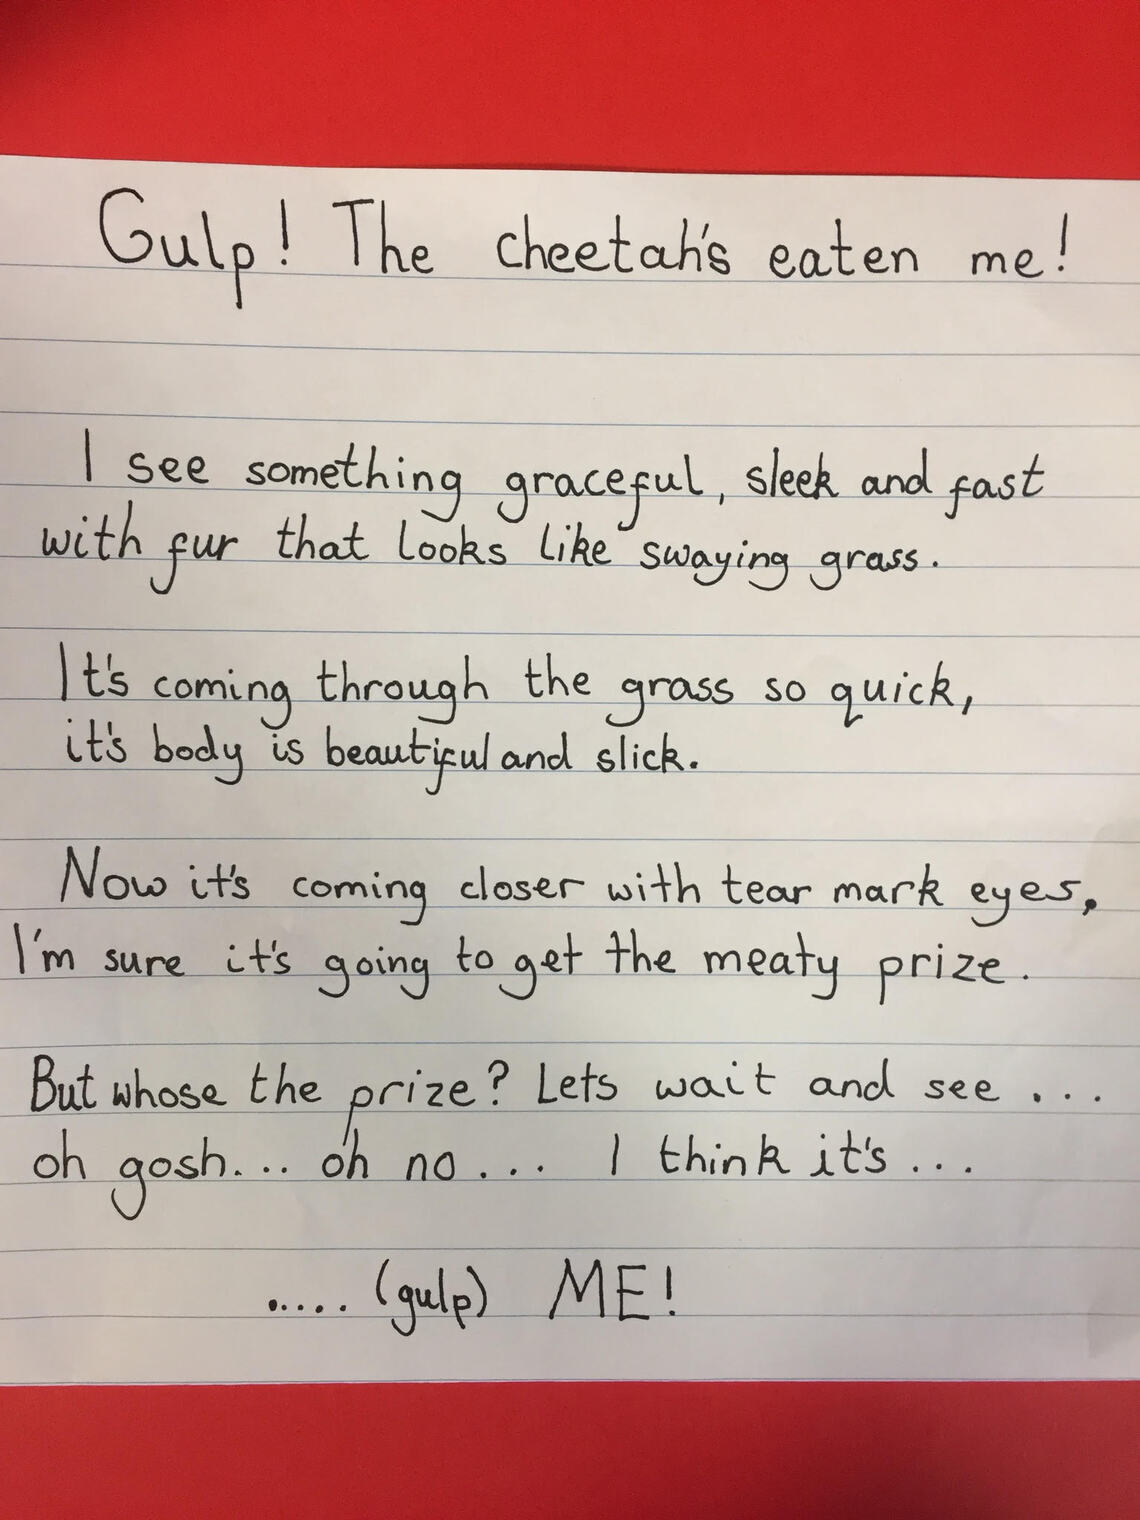 Gulp! The cheetah's eaten me!
I see something graceful, sleek and fast
with fur that looks like swaying grass.
It's coming through the grass so quick,
it's body is beautiful and slick.
Now it's coming closer with tear mark eyes,
I'm sure it's going to get the meaty prize.
But whose the prize? Lets wait and see ...
oh gosh... oh no ... I think it's ...
..... (gulp) ME!